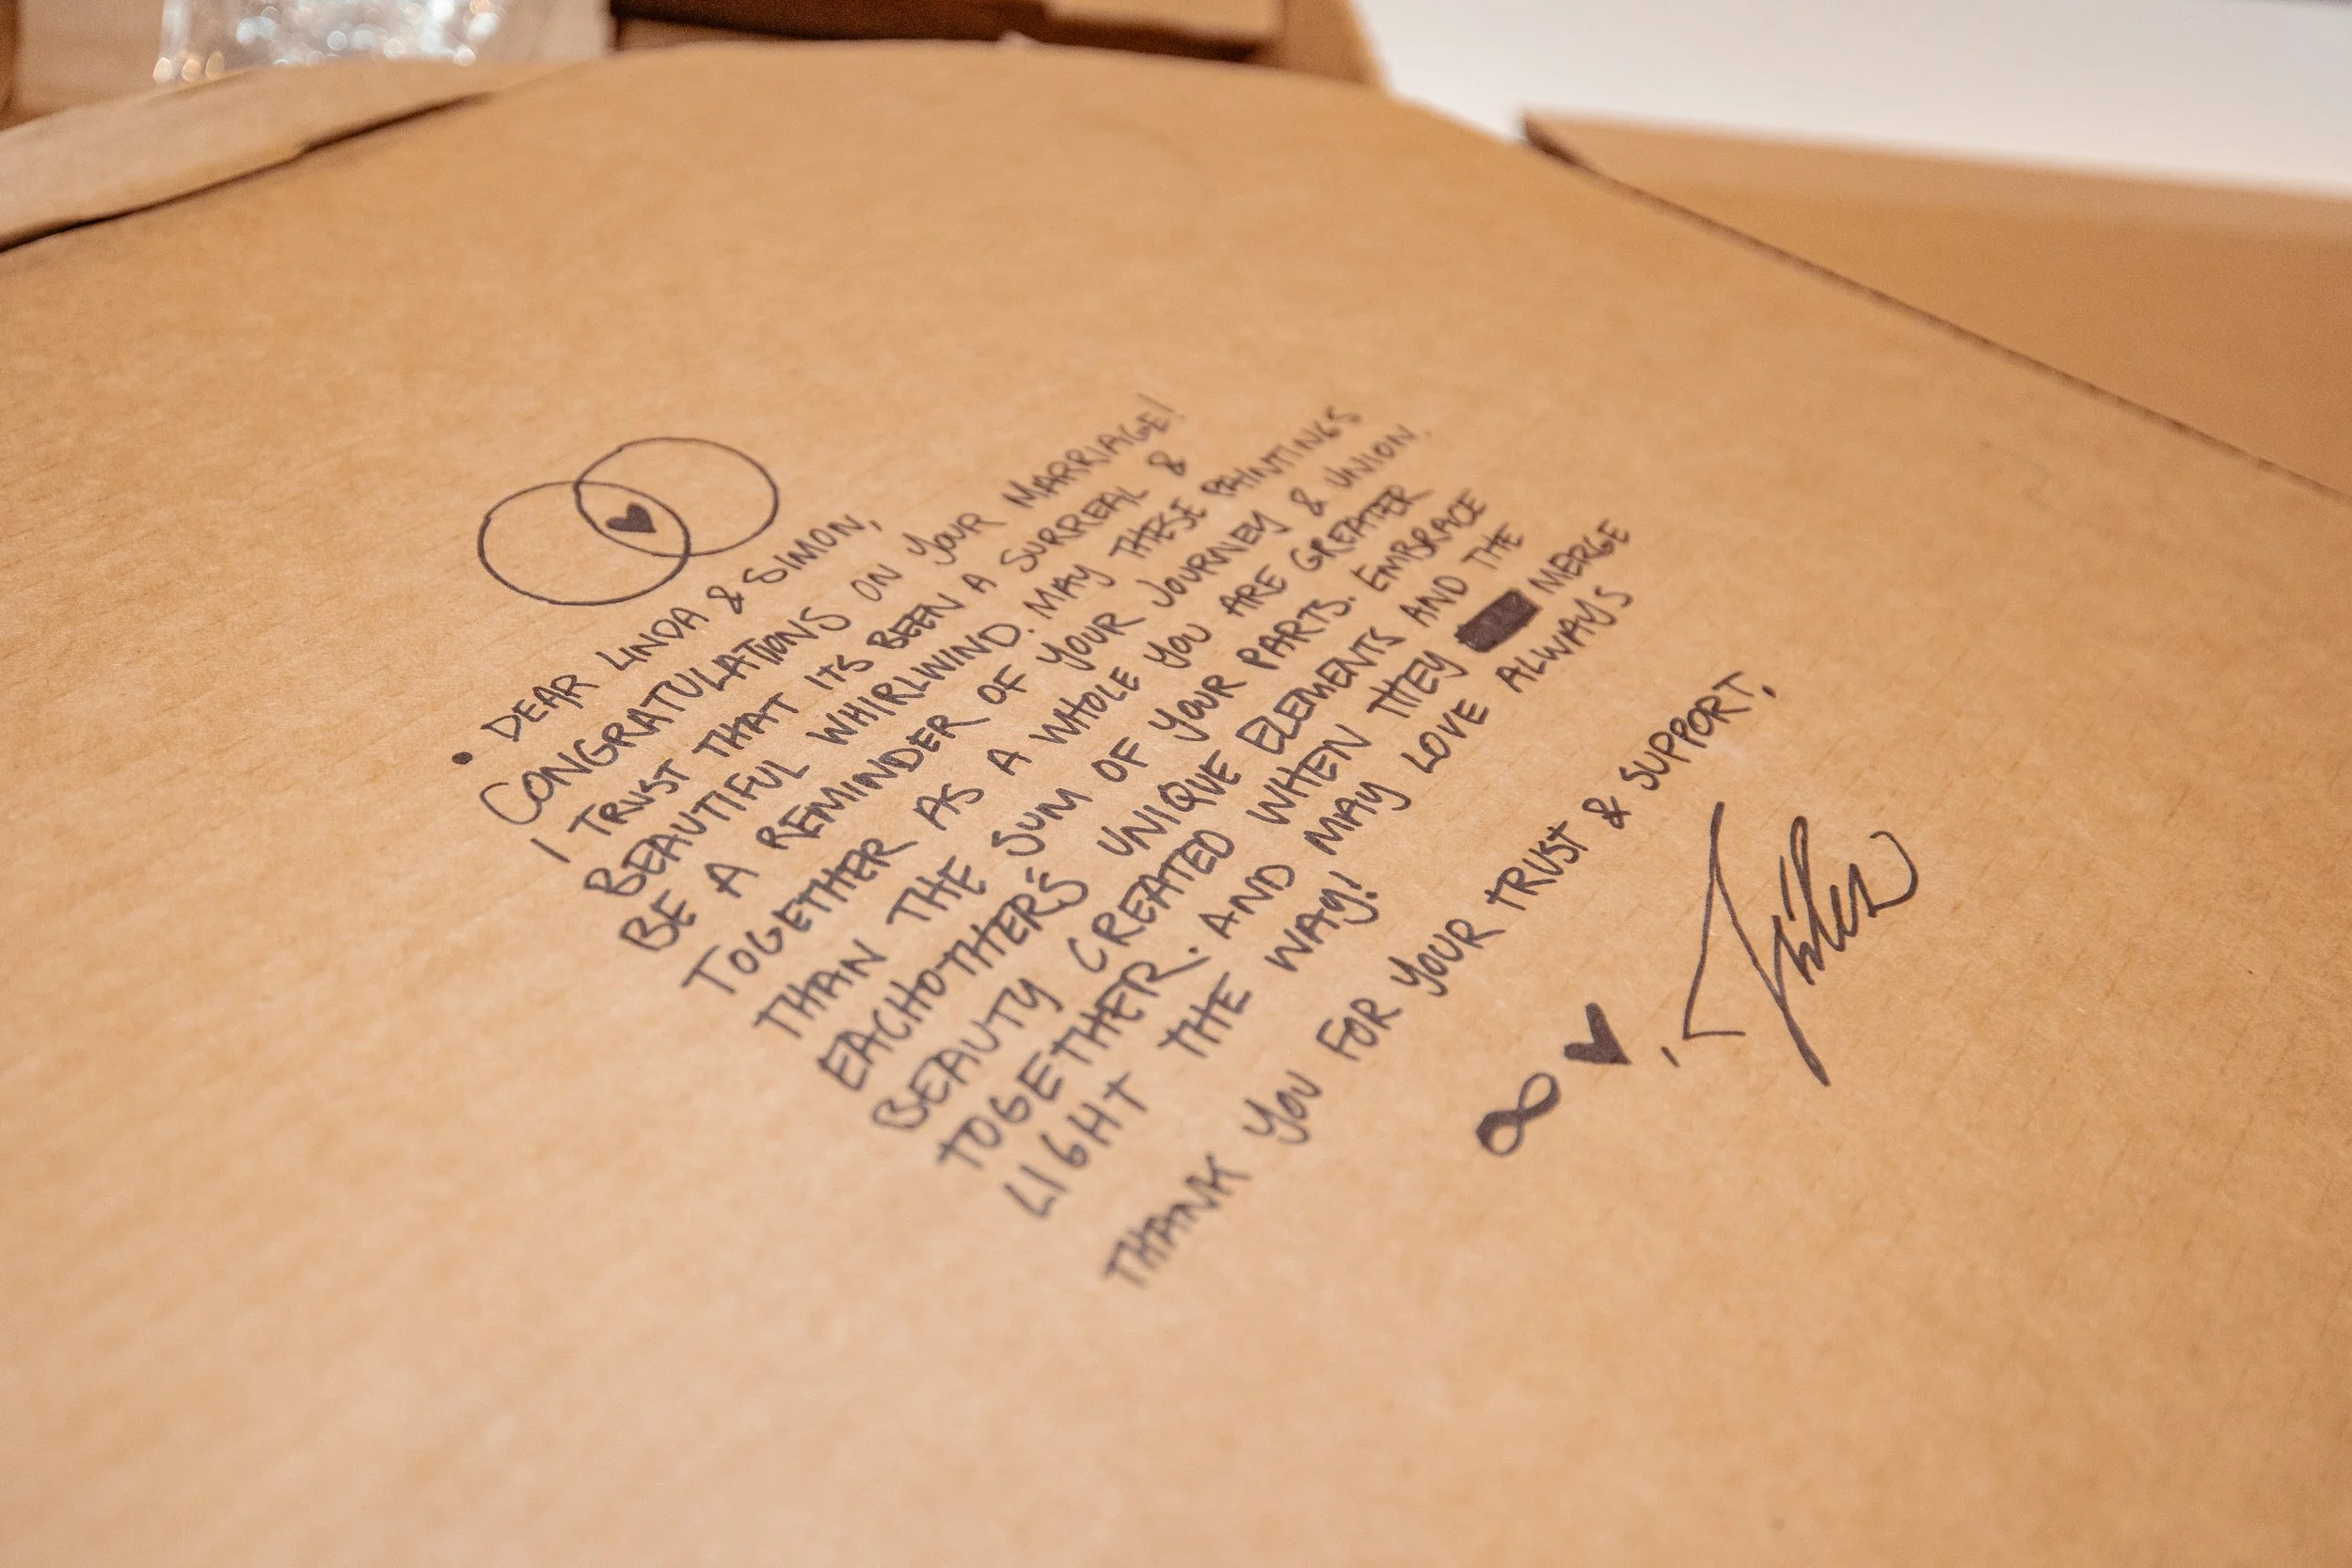 • DEAR LINDA & SIMON,
CONGRATULATIONS ON YOUR MARRIAGE!
I TRUST THAT ITS BEEN A SURREAL &
BEAUTIFUL WHIRLWIND. MAY THESE PAINTINGS
BE A REMINDER OF YOUR JOURNEY & UNION.
TOGETHER AS A WHOLE YOU ARE GREATER
THAN THE SUM OF YOUR PARTS. EMBRACE
EACHOTHERS UNIQUE ELEMENTS AND THE
BEAUTY CREATED WHEN THEY MERGE
TOGETHER. AND MAY LOVE ALWAYS
LIGHT THE WAY!
THANK YOU FOR YOUR TRUST & SUPPORT,
∞ ♥,